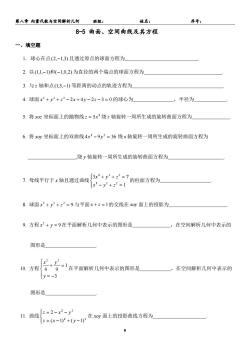 第八章 向量代数与空间解析几何 班级： 姓名： 序号：
8-5 曲面、空间曲线及其方程
一、填空题
1. 球心在点(2,-1,3)且通过原点的球面方程为
2. 以(1,1,-1)和(-1,0,2)为直径的两个端点的球面方程为
3. 与z轴和点(1,3,-1)等距离的动点的轨迹方程为
4. 球面x²+y²+z²-2x+4y-2z-3=0的球心为 ，半径为
5. 将xoz坐标面上的抛物线z=5x²绕z轴旋转一周所生成的旋转曲面方程为
6. 将xoy坐标面上的双曲线4x²-9y²=36绕x轴旋转一周所生成的旋转曲面方程为
绕y轴旋转一周所生成的旋转曲面方程为
7. 母线平行于x轴且通过曲线{3x²+y²+z²=7
x²-y²+z²=1 的柱面方程为
8. 球面x²+y²+z²=9与平面x+z=1的交线在xoy面上的投影为
9. 方程x²+y=9在平面解析几何中表示的图形是 ，在空间解析几何中表示的
图形是
10. 方程{x²/4+y²/9=1
y=-3 在平面解析几何中表示的图形是 ，在空间解析几何中表示的
图形是
11. 曲线{z=2-x²-y²
z=(x-1)²+(y-1)² 在xoy面上的投影曲线方程为